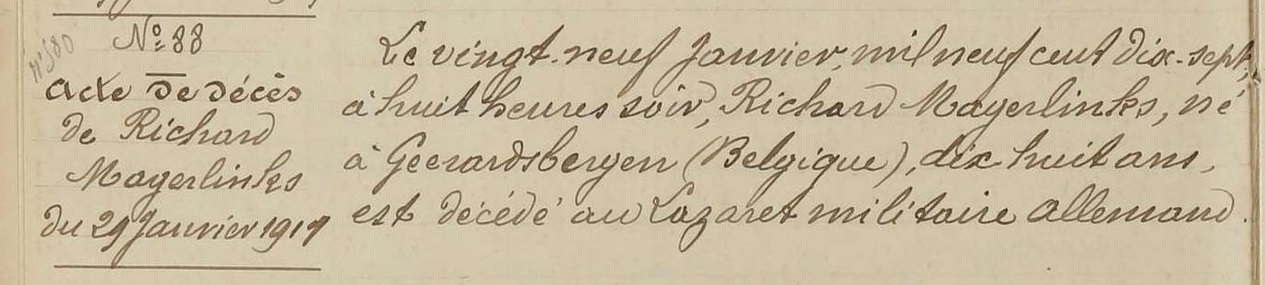 N° 88
N° 580
Acte de décès
de Richard
Mayerlinks
du 29 Janvier 1917
Le vingt-neuf Janvier, mil neuf cent dix-sept,
à huit heures soir, Richard Mayerlinks, né
à Geerardsbergen (Belgique), dix huit ans,
est décédé au Lazaret militaire allemand.